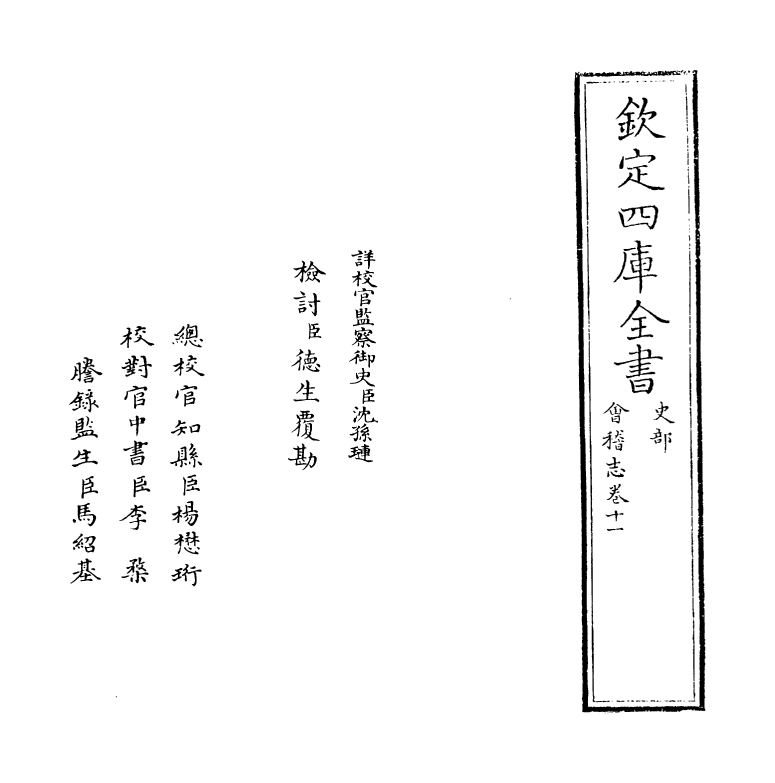 欽定四庫全書
史部
會稽志卷十一
詳校官監察御史臣沈孫璉
檢討臣德生覆勘
總校官知縣臣楊懋珩
校對官中書臣李 棨
謄錄監生臣馬紹基